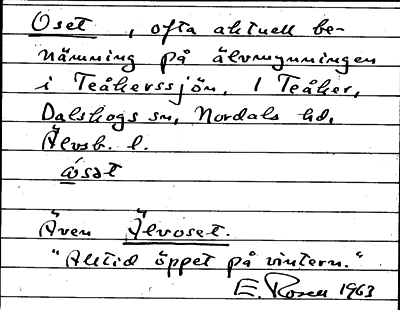 Oset , ofta aktuell be-
nämning på älvmynningen
i Teåkerssjön. 1 Teåker,
Dalskogs sn, Nordals hd,
Älvsb. l.
ósət
Även Älvoset.
"Alltid öppet på vintern."
E. Rosell 1963